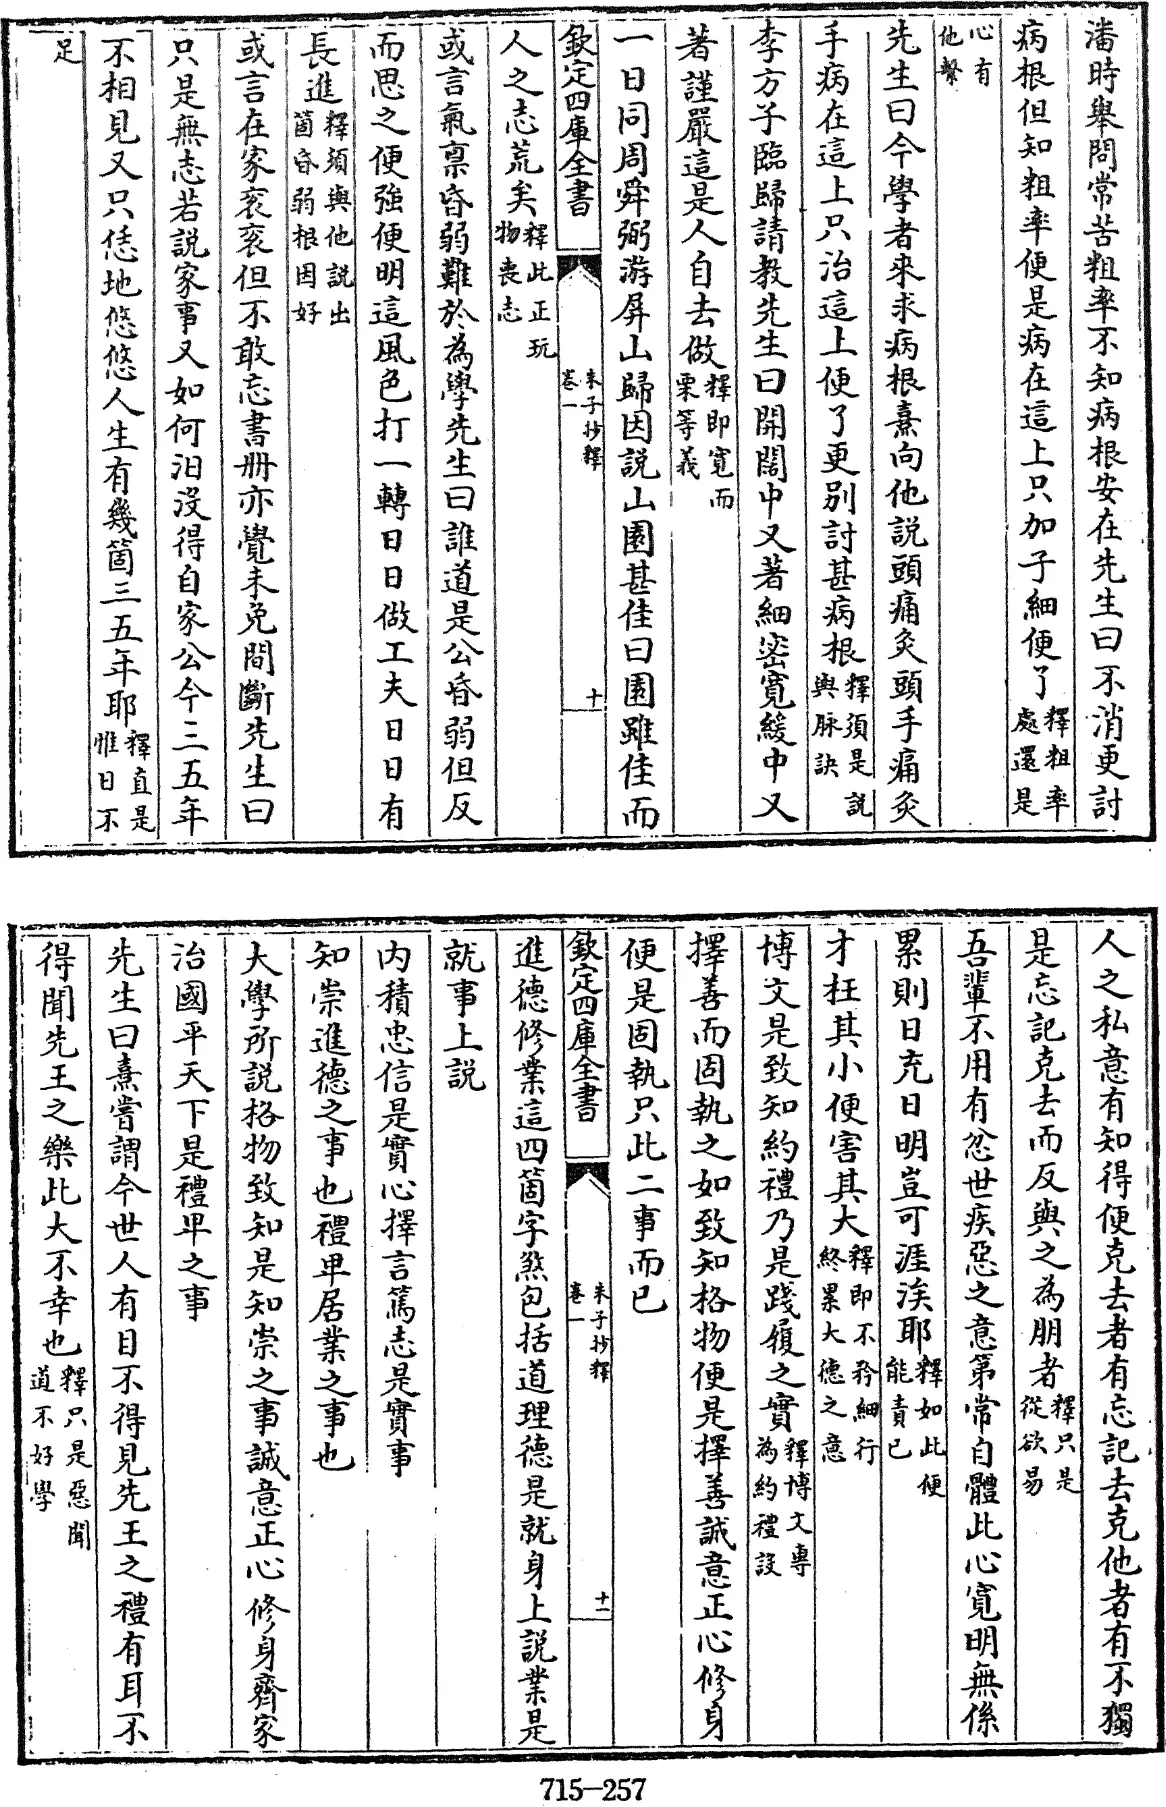 潘時舉問常苦粗率不知病根安在先生曰不消更討
病根但知粗率便是病在這上只加子細便了釋粗率處還是
心有他繫
先生曰今學者來求病根熹向他說頭痛灸頭手痛灸
手病在這上只治這上便了更別討甚病根釋須是說與脉訣
李方子臨歸請教先生曰開闊中又著細密寛緩中又
著謹嚴這是人自去做釋即寛而栗等義
一日同周舜弼游屏山歸因說山園甚佳曰園雖佳而
欽定四庫全書
朱子抄釋
卷一
十
人之志荒矣釋此正玩物喪志
或言氣禀昏弱難於為學先生曰誰道是公昏弱但反
而思之便強便明這風色打一轉日日做工夫日日有
長進釋須與他說出箇昏弱根因好
或言在家衮衮但不敢忘書册亦覺未免間斷先生曰
只是無志若說家事又如何汩沒得自家公今三五年
不相見又只恁地悠悠人生有幾箇三五年耶釋直是惟日不
足
人之私意有知得便克去者有忘記去克他者有不獨
是忘記克去而反與之為朋者釋只是從欲易
吾輩不用有忿世疾惡之意第常自體此心寛明無係
累則日充日明豈可涯涘耶釋如此便能責已
才枉其小便害其大釋即不矜細行終累大德之意
博文是致知約禮乃是踐履之實釋博文專為約禮設
擇善而固執之如致知格物便是擇善誠意正心修身
便是固執只此二事而已
欽定四庫全書
朱子抄釋
卷一
十一
進德修業這四箇字煞包括道理德是就身上說業是
就事上說
內積忠信是實心擇言篤志是實事
知崇進德之事也禮卑居業之事也
大學所說格物致知是知崇之事誠意正心修身齊家
治國平天下是禮卑之事
先生曰熹嘗謂今世人有目不得見先王之禮有耳不
得聞先王之樂此大不幸也釋只是惡聞道不好學
715-257